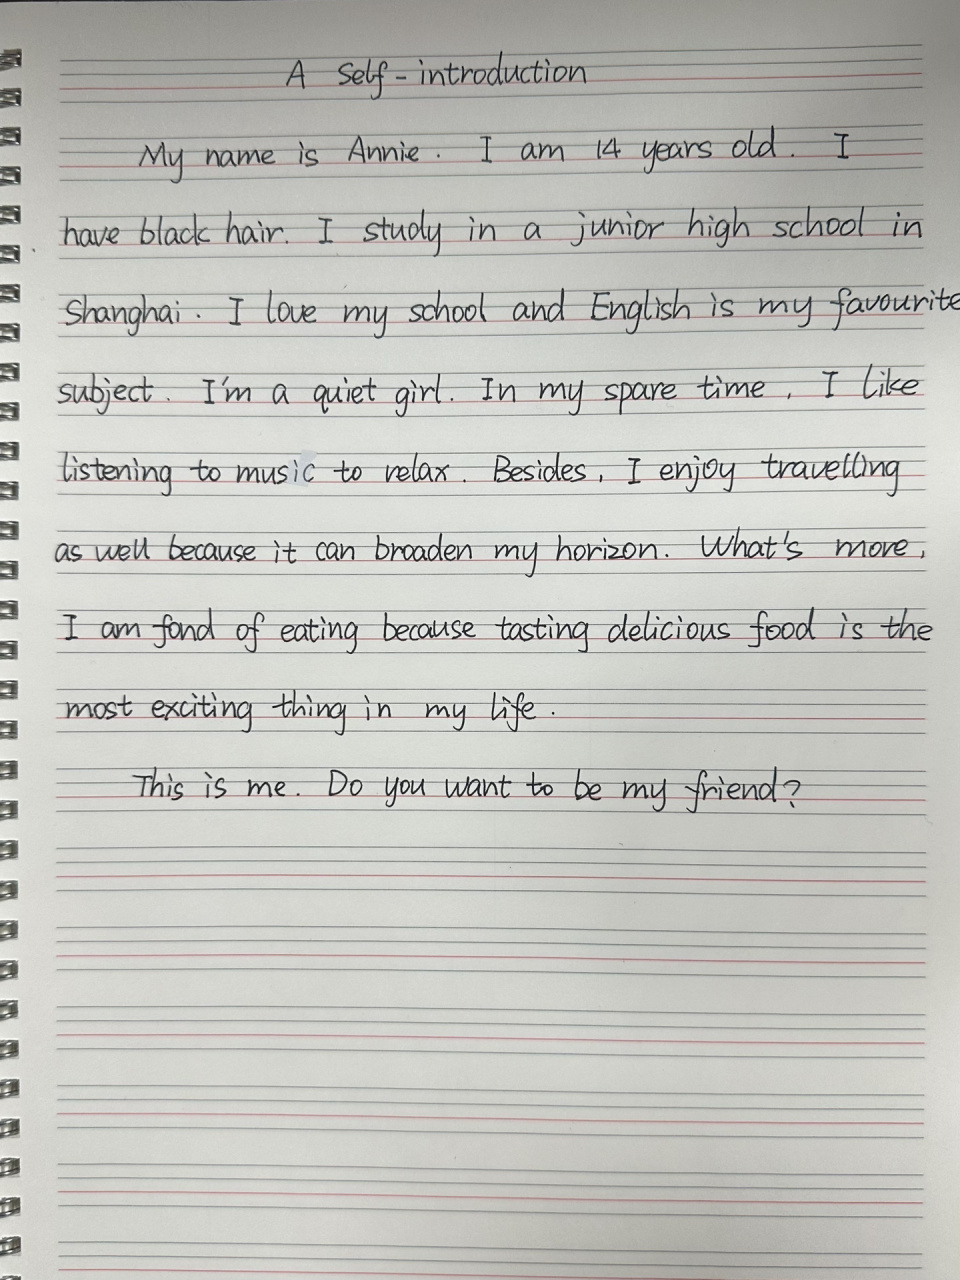 A Self-introduction
My name is Annie. I am 14 years old. I
have black hair. I study in a junior high school in
Shanghai. I love my school and English is my favourite
subject. I'm a quiet girl. In my spare time, I like
listening to music to relax. Besides, I enjoy travelling
as well because it can broaden my horizon. What's more,
I am fond of eating because tasting delicious food is the
most exciting thing in my life.
This is me. Do you want to be my friend?